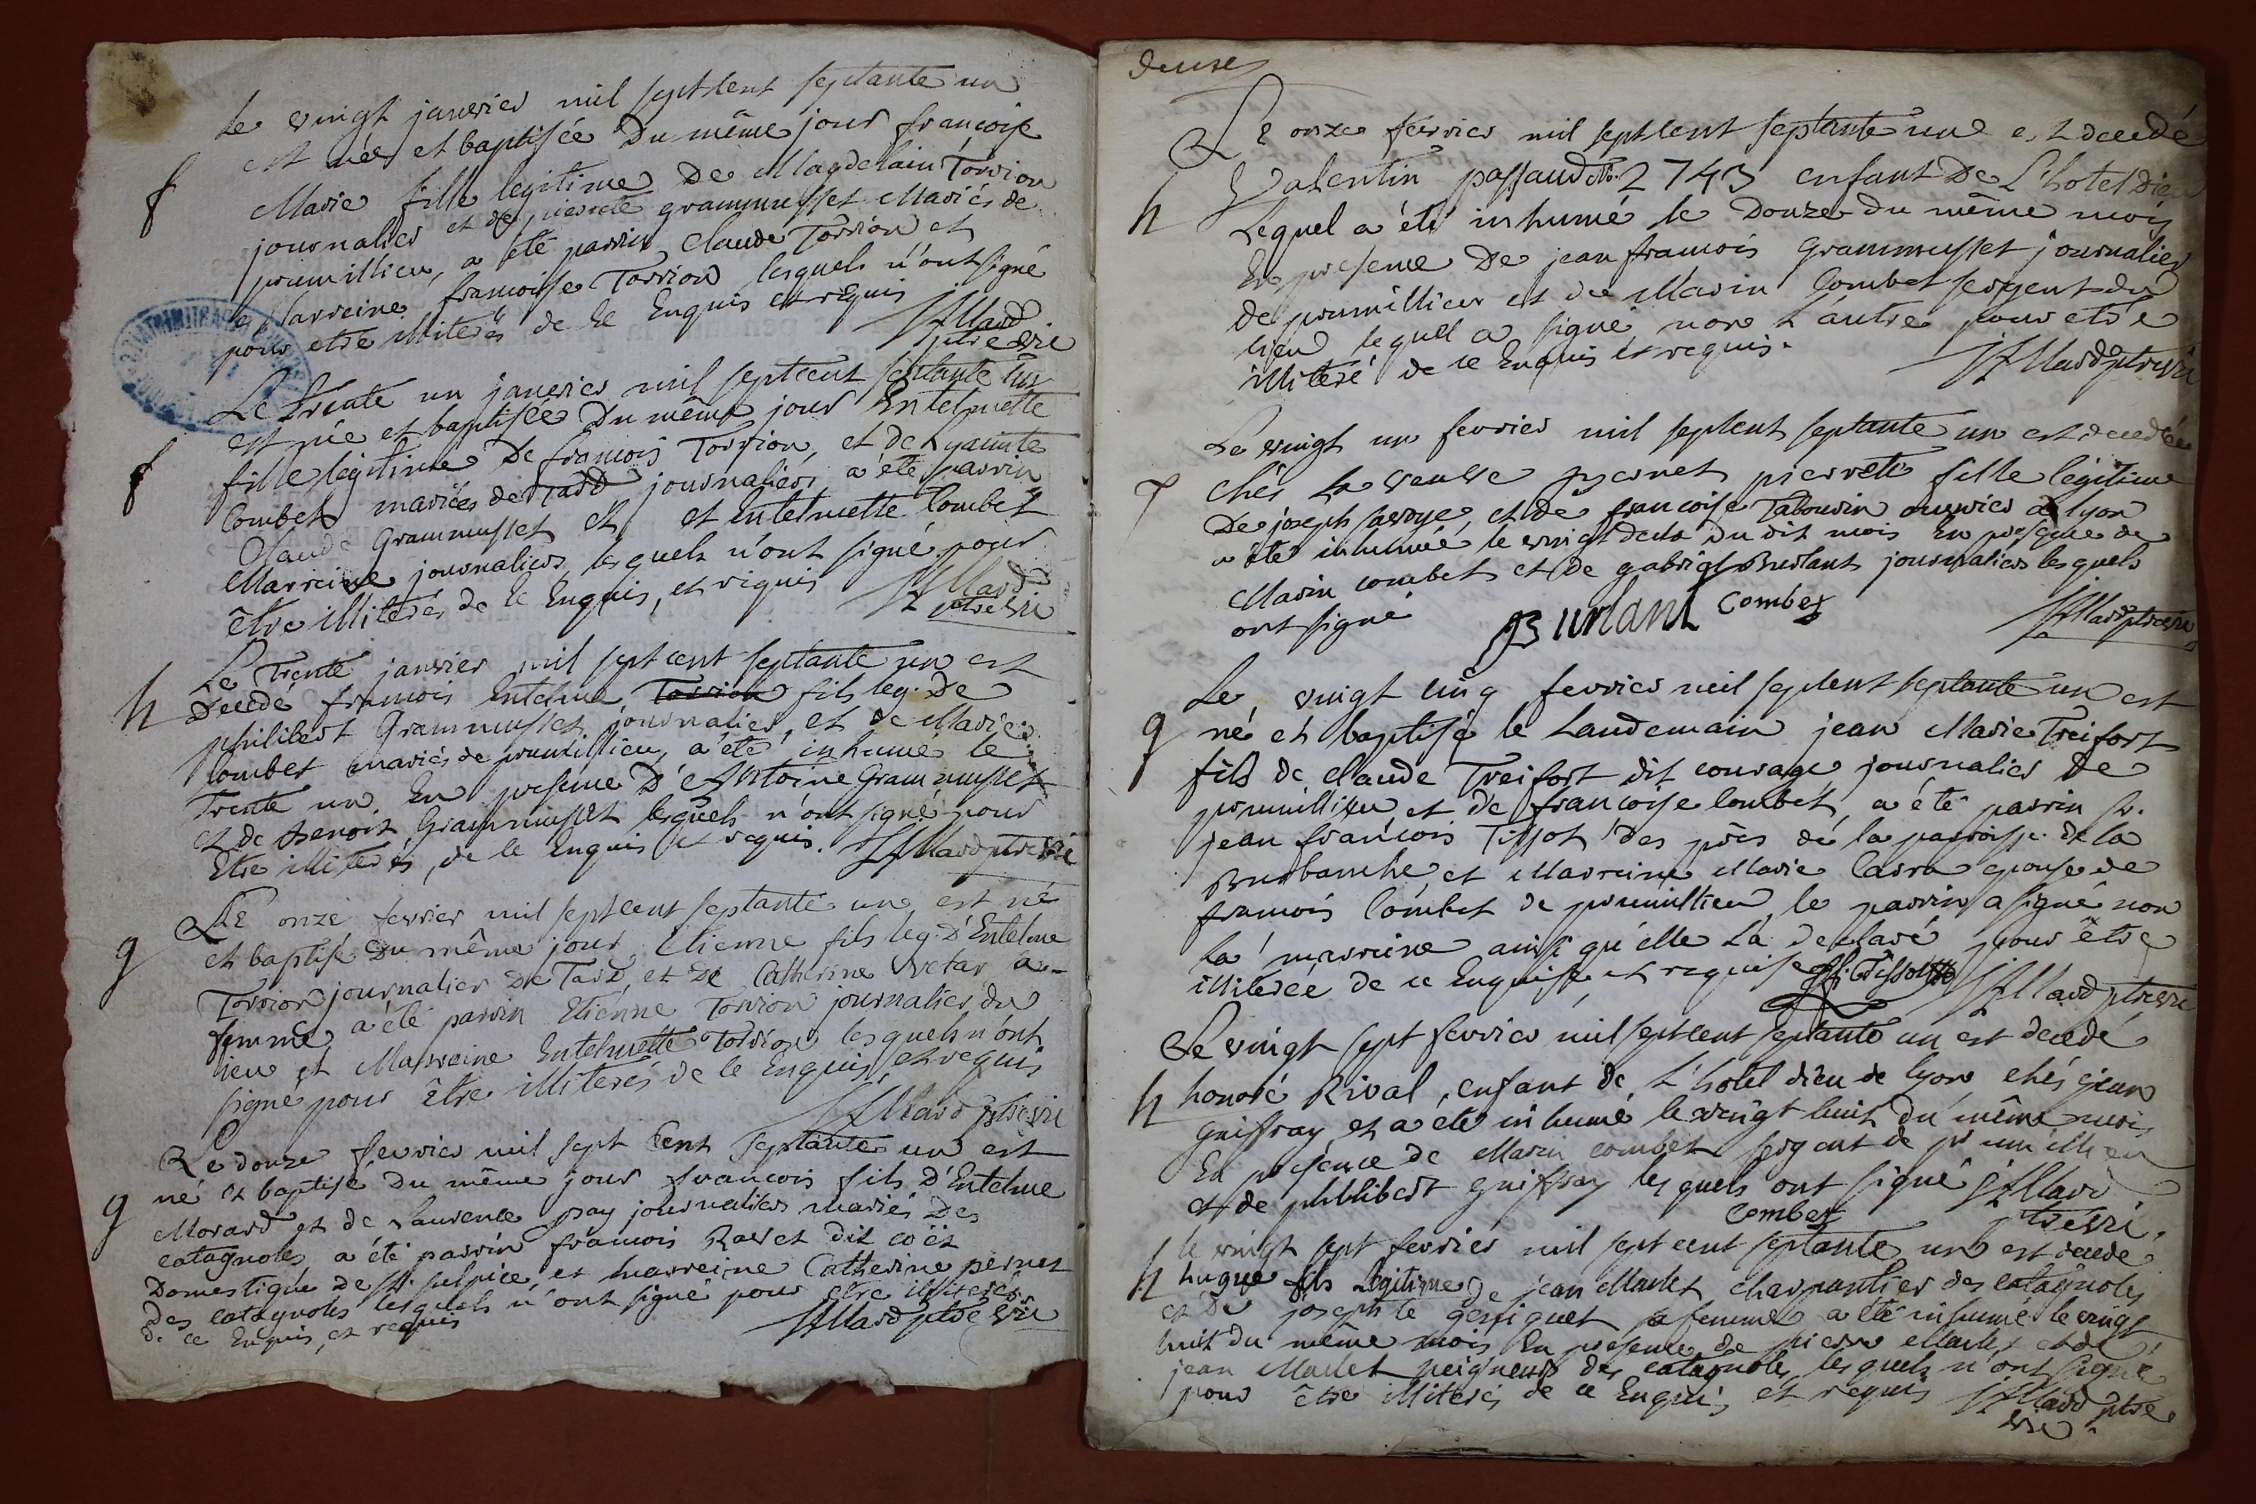 Le vingt janvier mil sept cent septante un
est née et baptisée du même jour francoise
f
Marie fille legitime de Magdelain Torrion
journalier et de pierrete grammusset Mariés de
prumillieu, a été parrin Claude Torrion et
Marreine francoise Torrion lesquels n'ont signé
pour etre illiterés de ce Enquis et requis
ptre vic
Le trente un janvier mil septcent septante un
est née et baptisée du même jour Entelmette
f
fille légitime De francois Torrion, et de hyainte
Combet mariés de Tard journaliers a été parrin
Claude Grammusset et et Entelmette Combet
Marreine journaliers lesquels n'ont signé pour
être illiterés de ce Enquis, et riquis
ptre vic
Le Trente janvier mil sept cent septante un est
h
Decedé francois Entelme Torrion fils leg. De
philibert Grammusset journalier, et de Marie
Combet mariés de prumillieu, a été inhumé le
Trente un En presence D'Antoine Grammusset
et de benoit Grammusset lesquels n'ont signé pour
Etre illiterés, de ce Enquis et requis. ptre vic
Le onze fevrier mil septcent septante un est né
g
et baptisé du même jour Etienne fils leg. D'Entelme
Torrion journalier De Tard, et De Catherine sa
femme a été parrin Etienne Torrion journalier du
lieu et Marreine Entelmette Torrion lesquels n'ont
signé pour être illiterés de ce Enquis, et requis
ptre vic
Le douze fevrier mil sept Cent Septante un est
né et baptisé du même jour francois fils d'Entelme
g
Morard et de Laurence pray journaliers mariés Des
catagnoles a été parrin francois Ravet dit
Domestique de St. sulpice, et marreine Catherine pernet
des catagnoles lesquels n'ont signé pour etre illiterés
de ce Enquis, et requis ptre vic
deuxe
Le onze fevrier mil septcent septante un est decedé
h
Valentin passaud No. 2743 enfant De L'hotel Dieu
Lequel a été inhumé le Douze du même mois
En presence De jean francois Grammusset journalier
de prumillieu et de Marin Combet sergent du
lieu lequel a signé non L'autre pour etre
illiteré de ce Enquis et requis.
ptre vic
Le vingt un fevrier mil septcent septante un est decedée
f
chés La veuve pernet pierrete fille légitime
De joseph savoye, et de francoise Tabourin ouvrier a lyon
a été inhumée le vingt deux Du dit mois En presence de
Marin combet et de gabriel Burlant journaliers lesquels
ont signé Burlant Combet ptre vic
Le vingt cinq fevrier mil septcent septante un est
g
né et baptisé le Landemain jean Marie Treifort
fils de claude Treifort dit courage journalier De
prumillieu et de francoise Combet, a été parrin sr.
jean francois Tissot Des prés de la parroisse de la
Burbanche et Marreine Marie Carra epouse de
francois Combet de prumillieu le parrin a signé non
la marreine ainsi qu'elle la declaré pour être
illiterée de ce Enquise et requise jf. Tissot ptre vic
Le vingt sept fevrier mil septcent septante un est decedé
h
honoré Rival, enfant de L'hotel dieu de lyon chés jean
guifray et a été inhumé le vingt huit du même mois
En presence de Marin combet sergent de prumillieu
et de philibert guifray lesquels ont signé
Combet ptre vic.
le vingt sept fevrier mil sept cent septante un est decedé
h
hugue fils Légitime de jean Marlet charpantier des catagnoles
et De josephte sa femme a été inhumé le vingt
huit du même mois En presence de pierre Marlet et de
jean Marlet peigneurs des catagnoles lesquels n'ont signé
pour être illiterés de ce Enquis et requis ptre
vic.